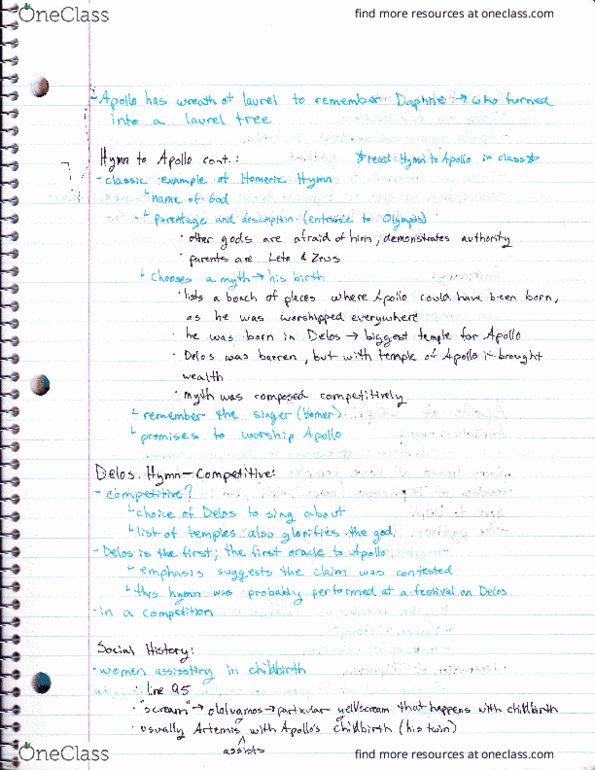 OneClass
find more resources at oneclass.com
- Apollo has wreath of laurel to remember Daphne → who turned
into a laurel tree
Hymn to Apollo cont.: *read Hymn to Apollo in class*
- classic example of Homeric Hymn
└ name of God
└ parentage and description (entrance to Olympus)
· other gods are afraid of him, demonstrates authority
· parents are Leto & Zeus
└ chooses a myth → his birth
· lists a bunch of places where Apollo could have been born,
as he was worshipped everywhere
· he was born in Delos → biggest temple for Apollo
· Delos was barren, but with temple of Apollo it brought
wealth
· myth was composed competitively
└ remember the singer (Homer)
└ promises to worship Apollo
Delos Hymn - Competitive:
- competitive?
└ choice of Delos to sing about
└ list of temples also glorifies the god
- Delos is the first; the first oracle to Apollo
└ emphasis suggests the claim was contested
└ this hymn was probably performed at a festival on Delos
- in a competition
Social History:
- women assisting in childbirth
· line 95
· "scream" → particular yell/scream that happens with childbirth
· usually Artemis assists with Apollo's childbirth (his twin)
OneClass
find more resources at oneclass.com